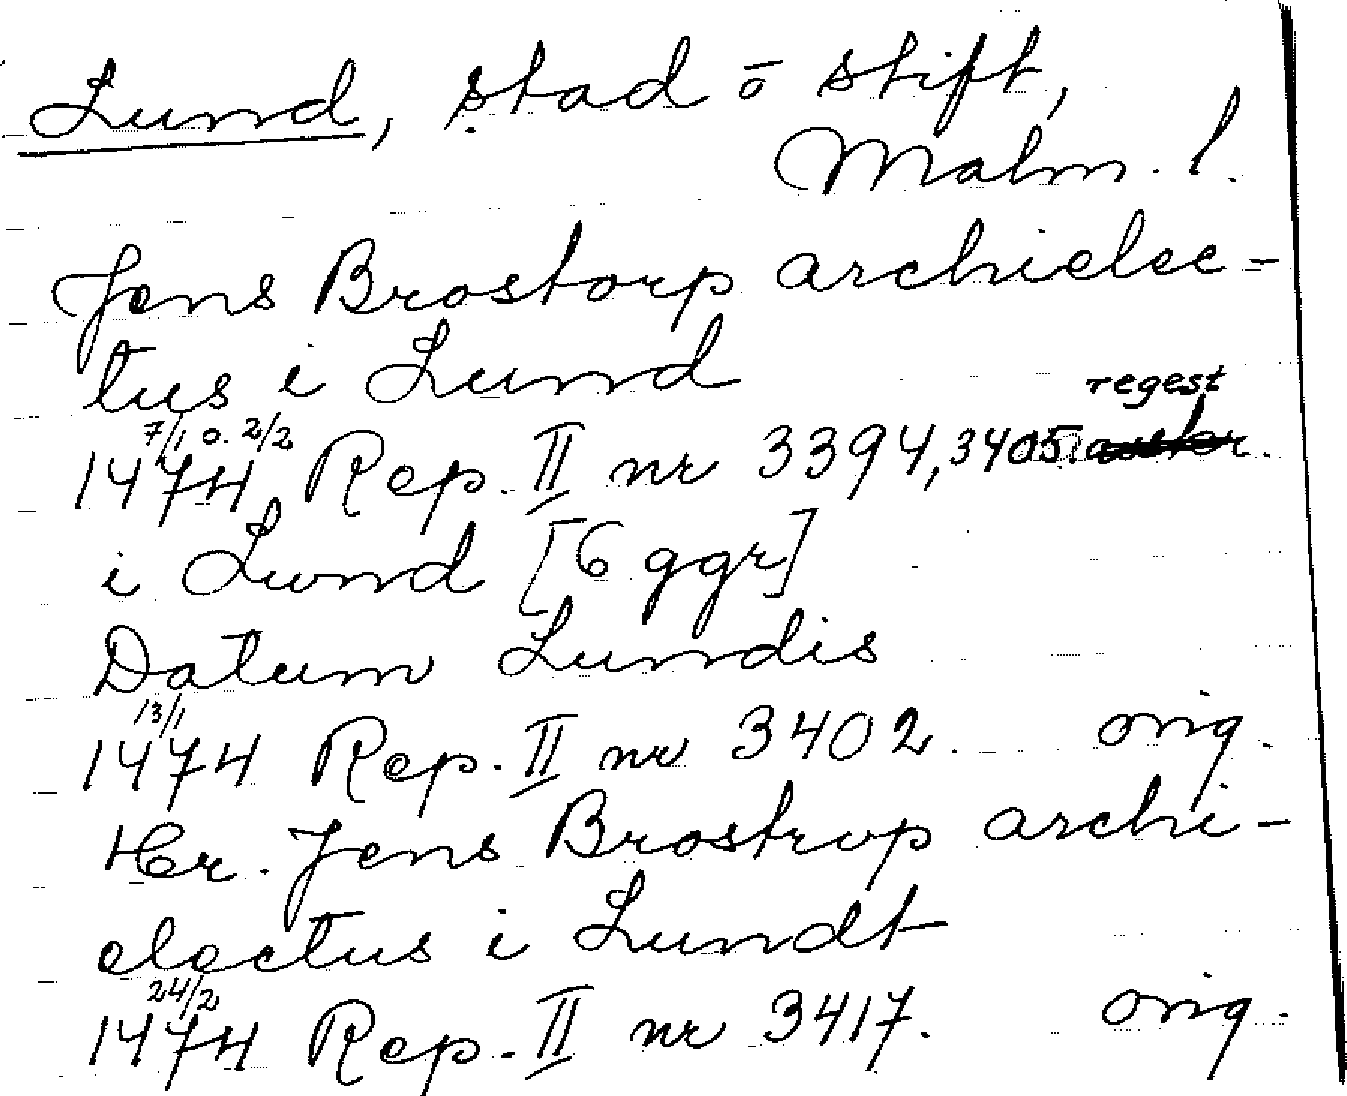 Lund, stad ō stift,
Malm. l.
Jens Brostorp archielec-
tus i Lund
regest
7/1 o. 2/2
1474 Rep. II nr 3394, 3405,
i Lund [6 ggr]
Datum Lundis
13/1
1474 Rep. II nr 3402. orig.
Her. Jens Brostrup archi-
electus i Lundt
24/2
1474 Rep. II nr 3417. orig.